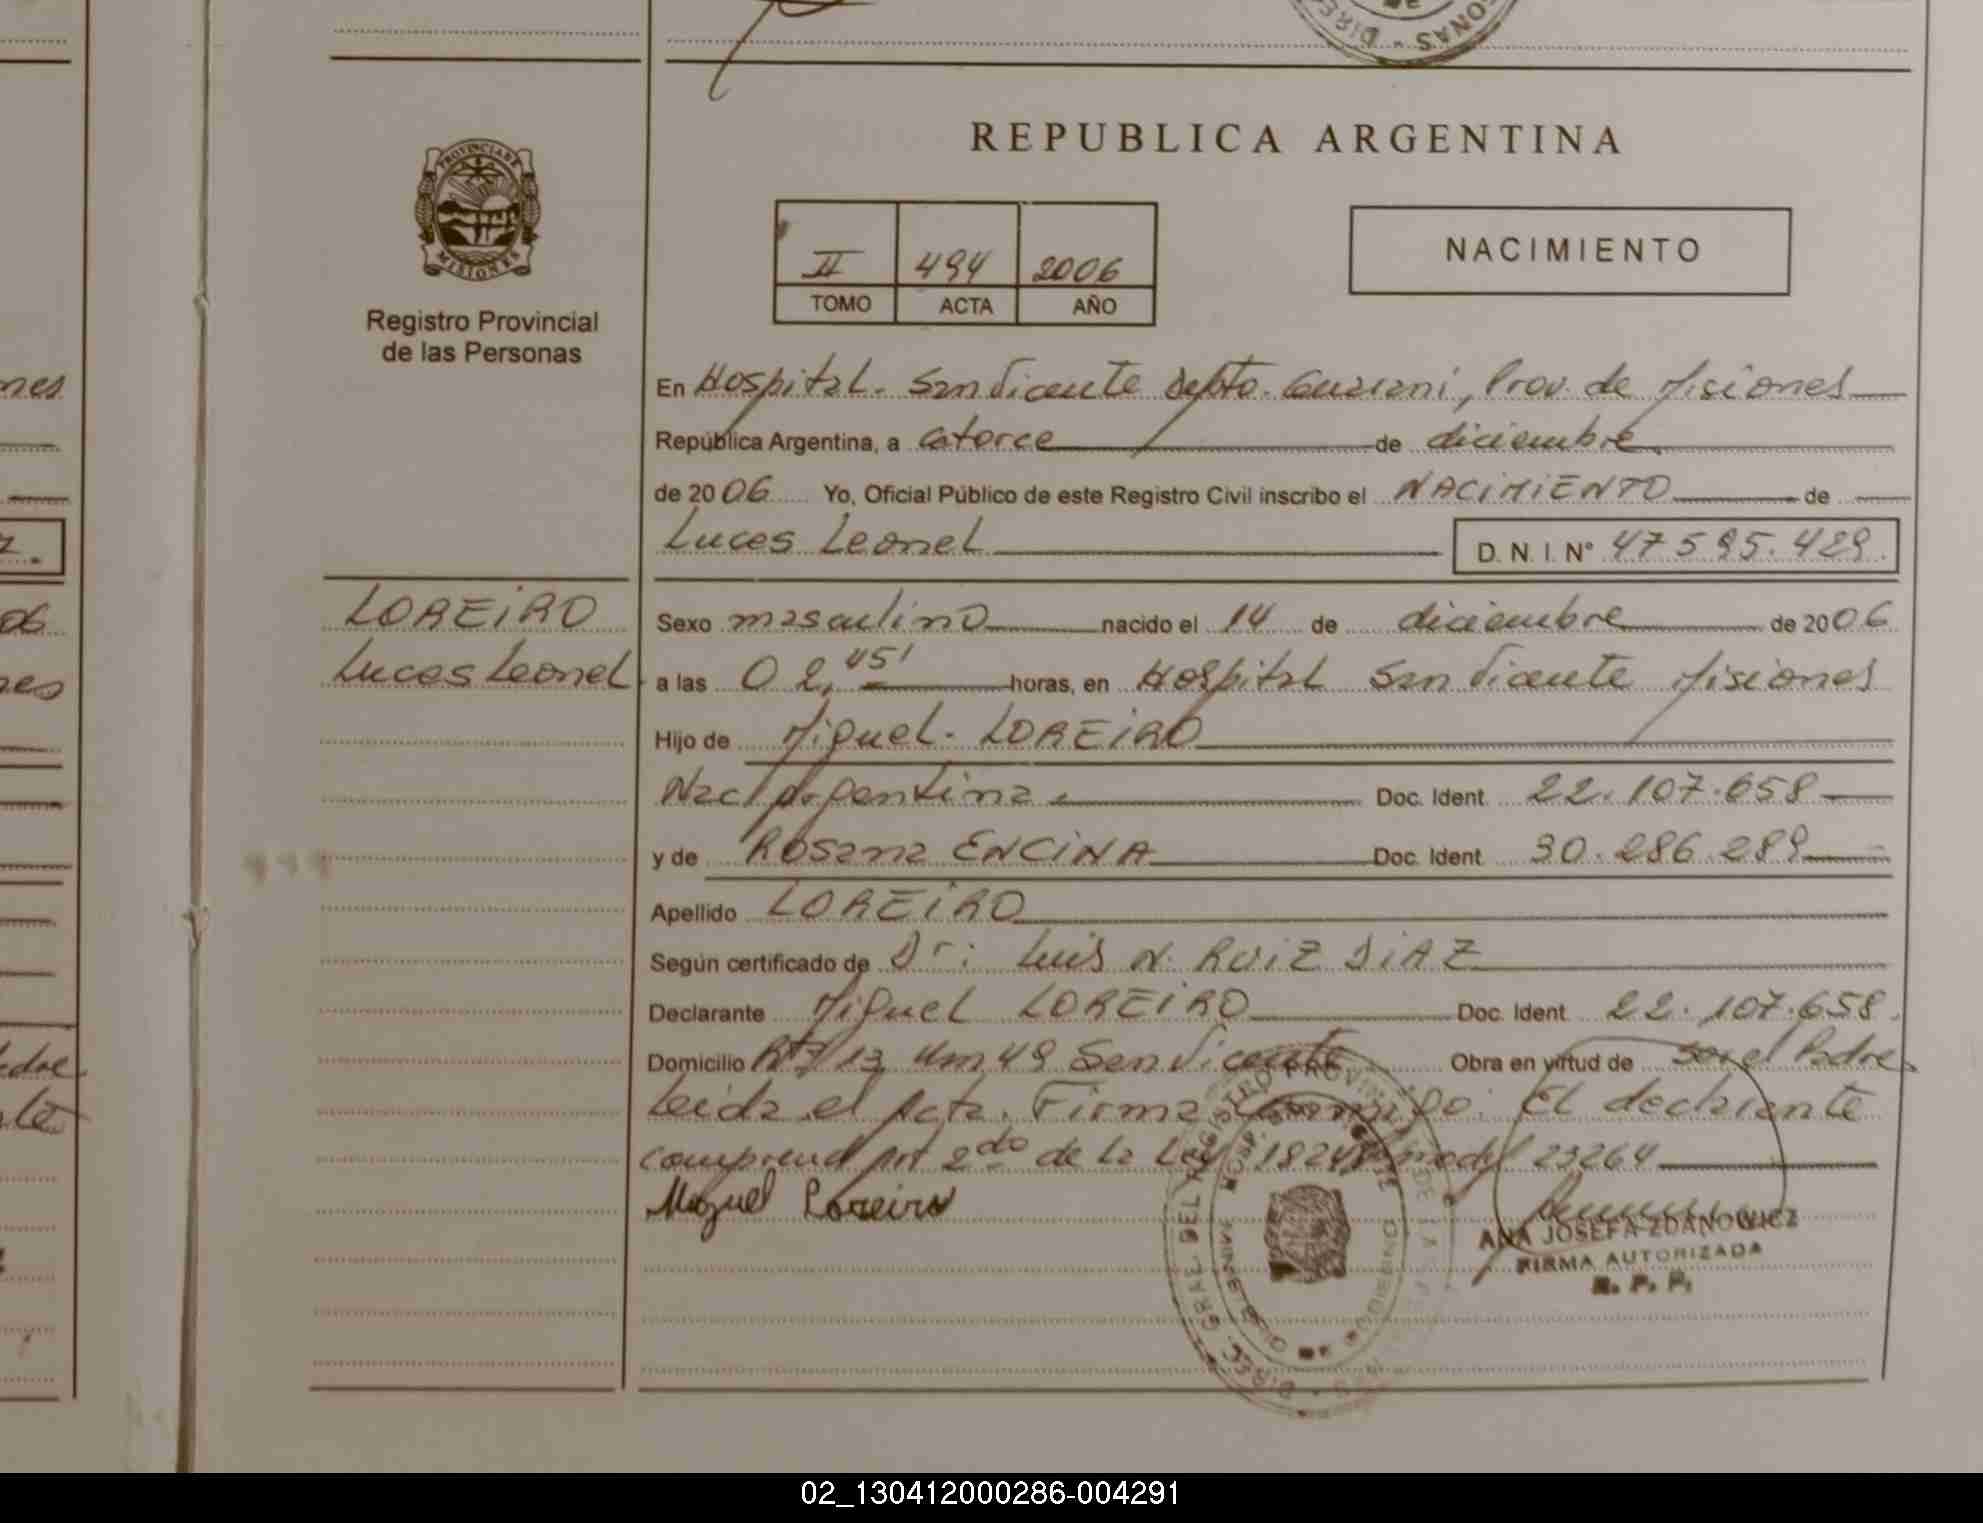 REPUBLICA ARGENTINA
PROVINCIA DE
MISIONES
Registro Provincial
de las Personas
II 494 2006
TOMO ACTA AÑO
NACIMIENTO
En Hospital. San Vicente Depto. Guarani, Prov. de Misiones
República Argentina, a catorce de diciembre
de 2006 Yo, Oficial Público de este Registro Civil inscribo el NACIMIENTO de
Lucas Leonel D. N. I. N° 47595.429.
LOREIRO
Lucas Leonel
Sexo masculino nacido el 14 de diciembre de 2006
a las 02,45' horas, en Hospital San Vicente Misiones
Hijo de Miguel. LOREIRO
Nac. Argentina. Doc. Ident. 22.107.658
y de Rosana ENCINA Doc. Ident. 30.286.289
Apellido LOREIRO
Según certificado de Dr: Luis N. RUIZ DIAZ
Declarante Miguel LOREIRO Doc. Ident. 22.107.658.
Domicilio Rta 13 Km 49 San Vicente Obra en virtud de ser el Padre
Leida el Acta. Firma Conmigo. El declarante
comprend Art 2do de la Ley 18248 modf 23264
Miguel Loreiro
ANA JOSEFA ZDANOWICZ
FIRMA AUTORIZADA
R. P. P.
02_130412000286-004291